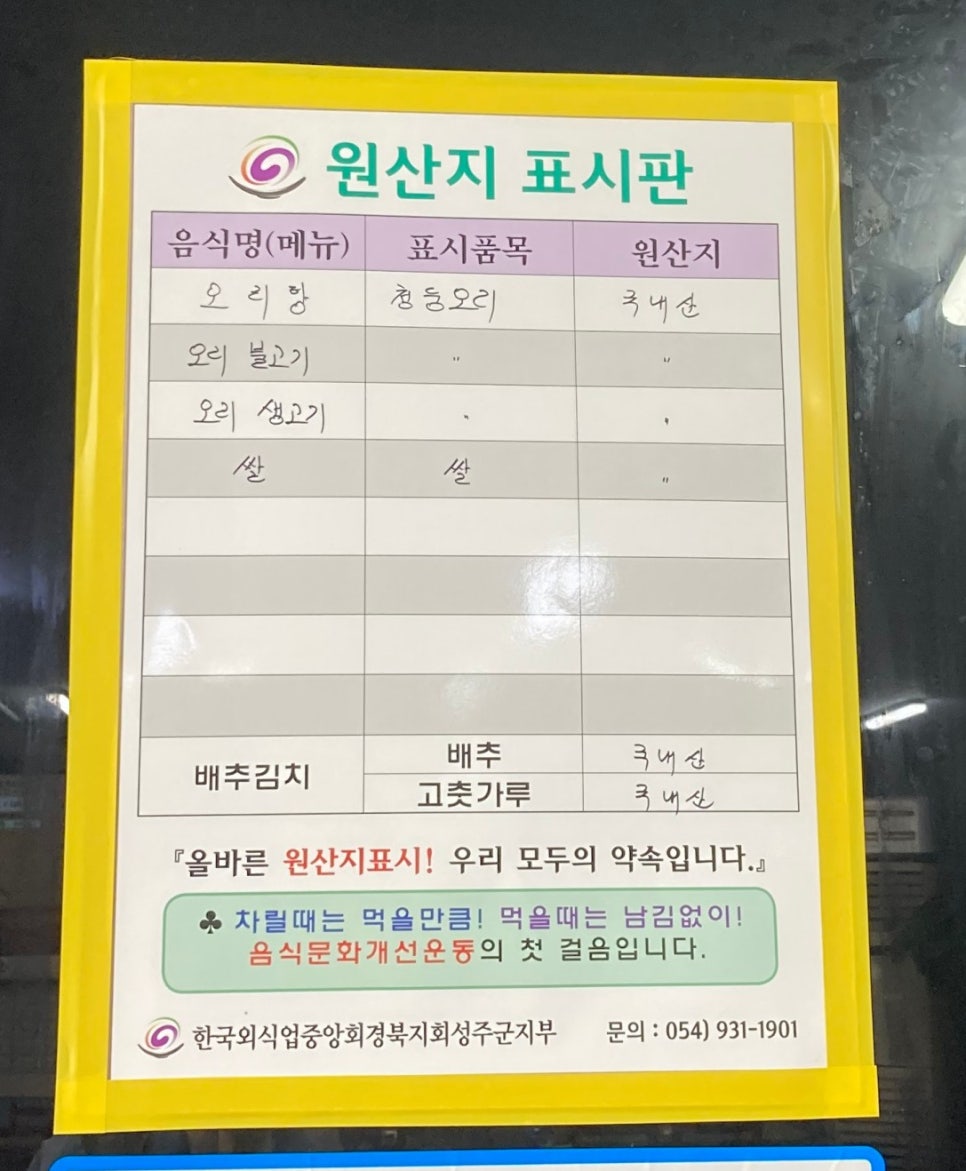 원산지 표시판
음식명(메뉴) 표시품목 원산지
오리탕 청둥오리 국내산
오리 불고기 " "
오리 생고기 " "
쌀 쌀 "
배추김치 배추 국내산
고춧가루 국내산
『올바른 원산지표시! 우리 모두의 약속입니다.』
♣ 차릴때는 먹을만큼! 먹을때는 남김없이!
음식문화개선운동의 첫 걸음입니다.
한국외식업중앙회경북지회성주군지부 문의 : 054) 931-1901